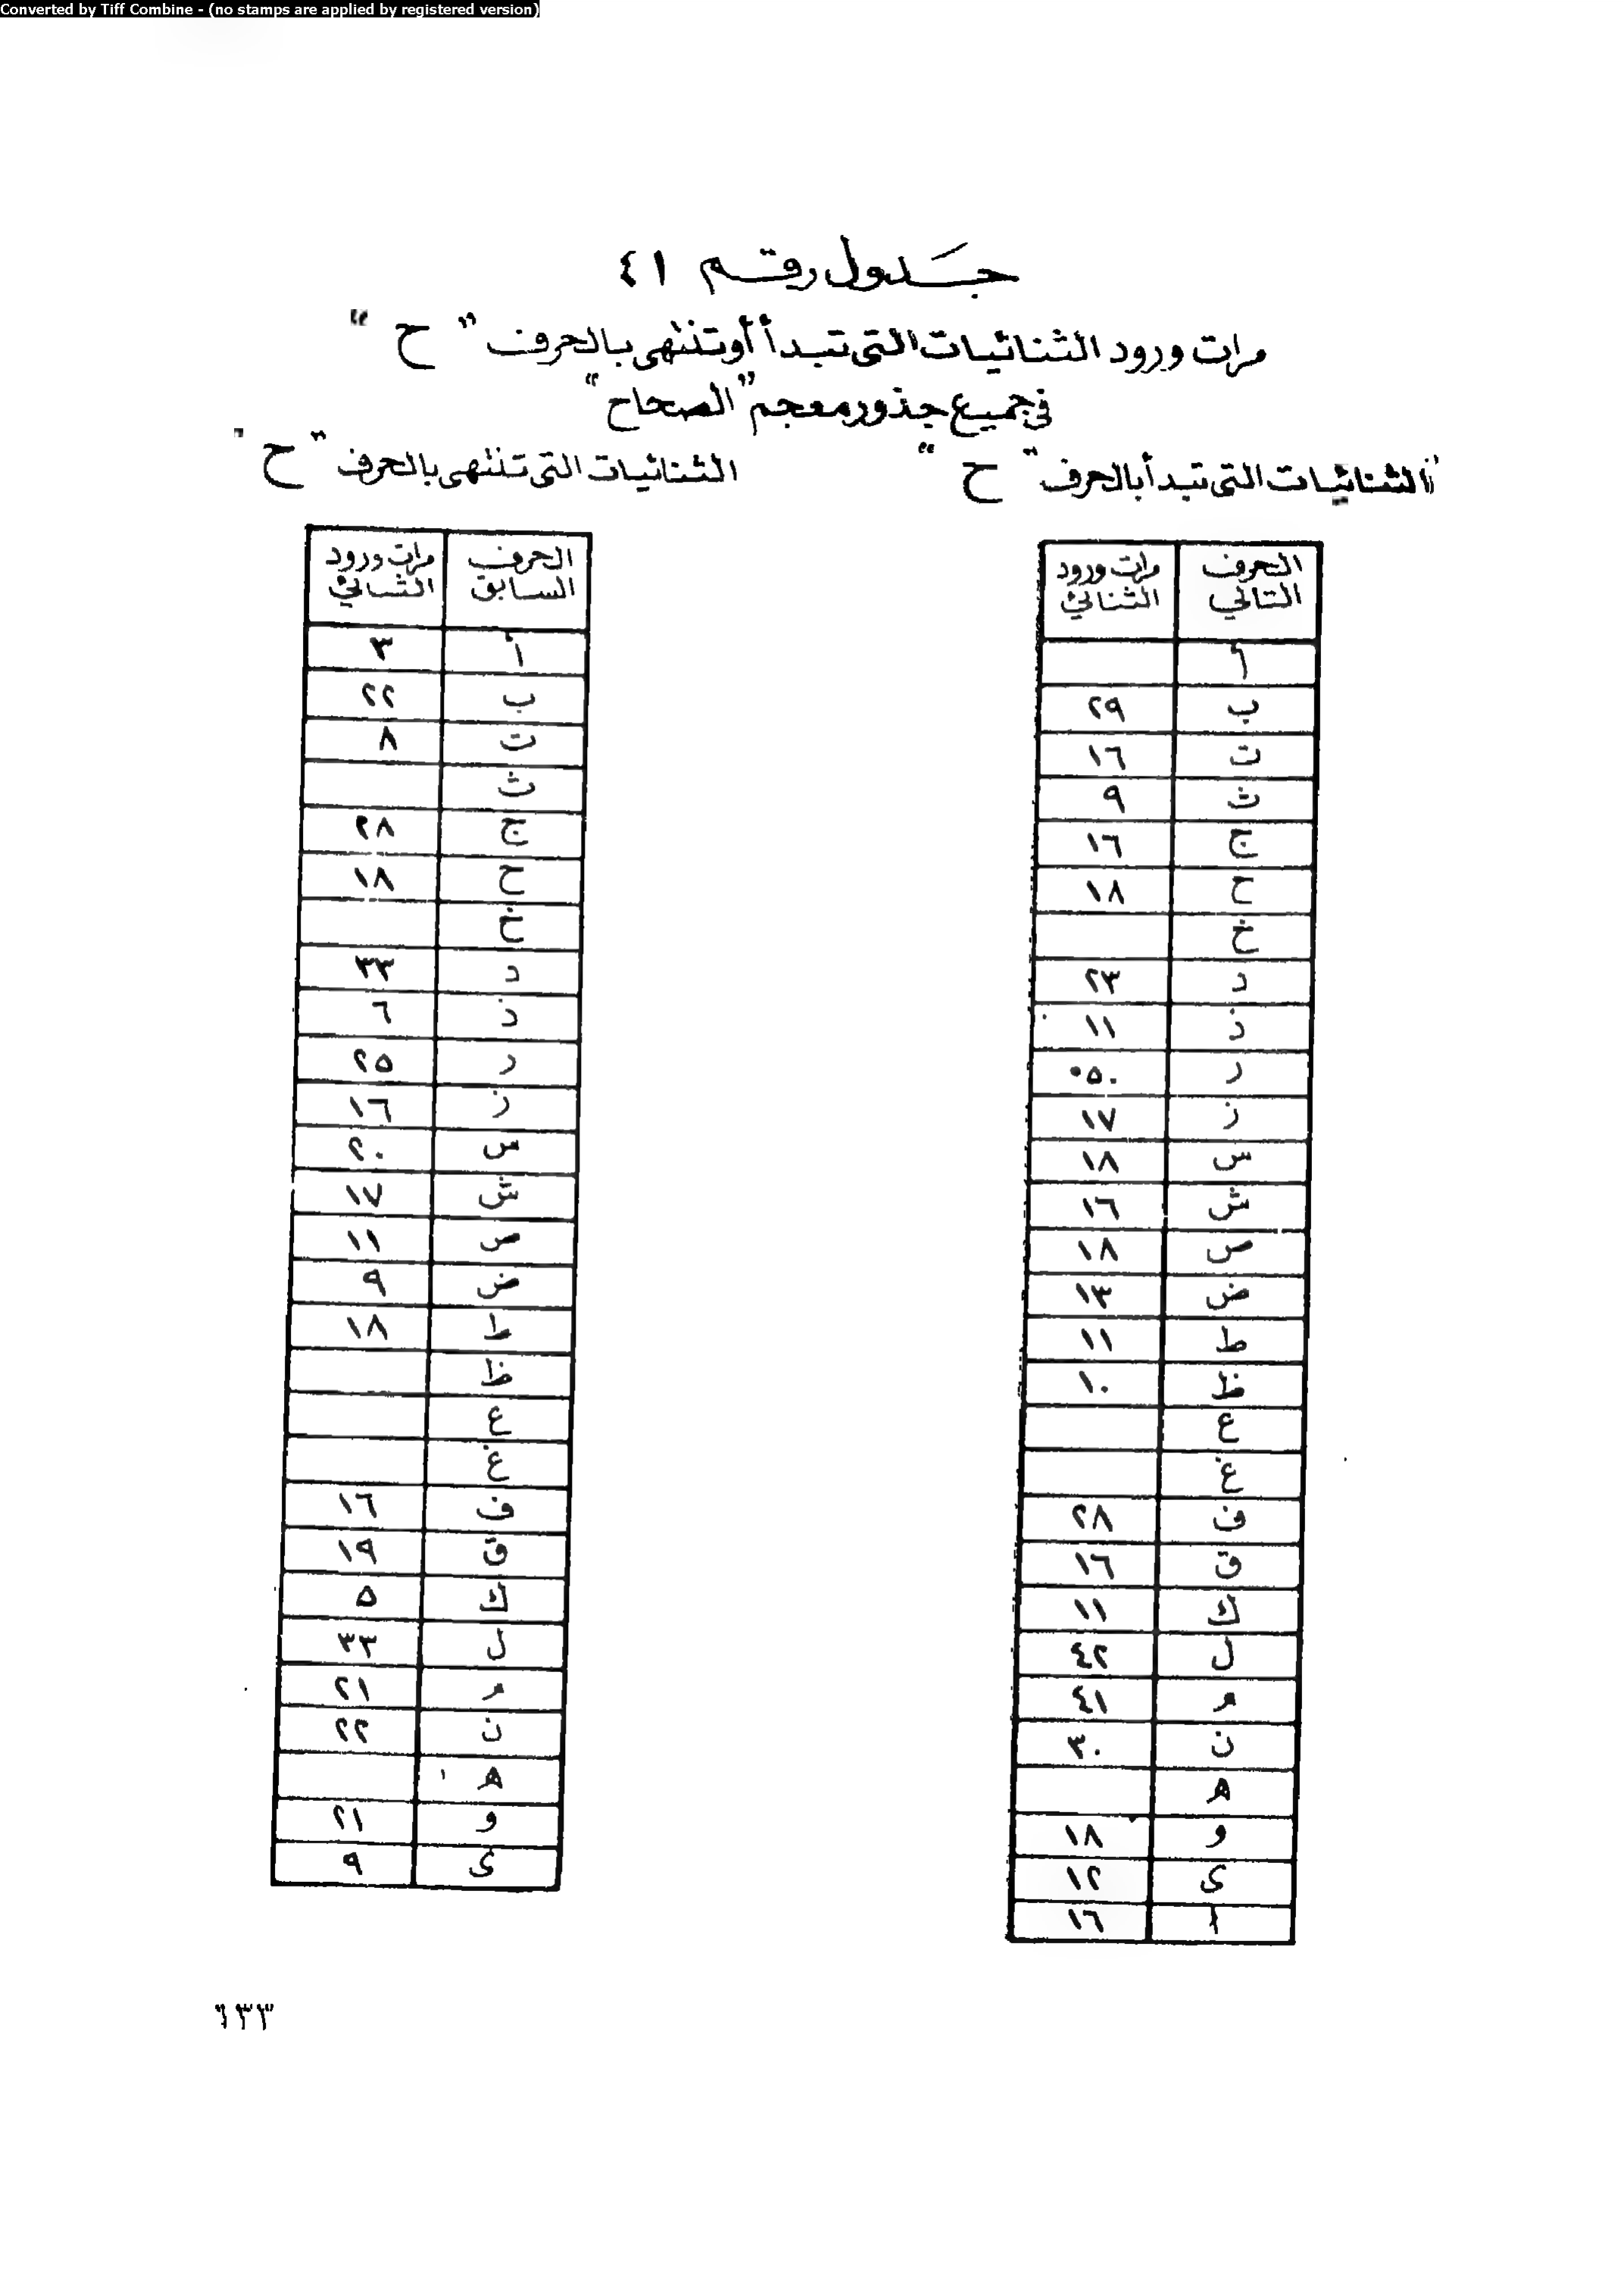 Converted by Tiff Combine - (no stamps are applied by registered version)
جَدول رقم ٤١
مرات ورود الثنائيات التى تبدأ أو تنتهى بالحرف " ح "
فى جميع جذور معجم "الصحاح"
الثنائيات التى تبدأ بالحرف " ح "
الحرف التالي مرات ورود الثنائي
أ
ب ٢٩
ت ١٦
ث ٩
ج ١٦
ح ١٨
خ
د ٢٣
ذ ١١
ر ٥٠
ز ١٧
س ١٨
ش ١٦
ص ١٨
ض ١٣
ط ١١
ظ ١٠
ع
غ
ف ٢٨
ق ١٦
ك ١١
ل ٤٢
م ٤١
ن ٣٠
ه
و ١٨
ى ١٢
أ ١٦
الثنائيات التى تنتهى بالحرف " ح "
الحرف السابق مرات ورود الثنائي
أ ٣
ب ٢٢
ت ٨
ث
ج ٢٨
ح ١٨
خ
د ٣٣
ذ ٦
ر ٢٥
ز ١٦
س ٢٠
ش ١٧
ص ١١
ض ٩
ط ١٨
ظ
ع
غ
ف ١٦
ق ١٩
ك ٥
ل ٣٣
م ٢١
ن ٢٢
ه
و ٢١
ى ٩
٦٣٣